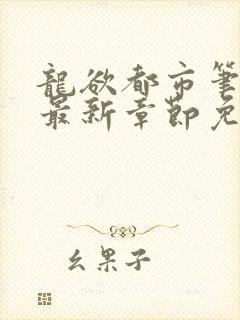 龍欲都市筆
最新章節免
幺果子